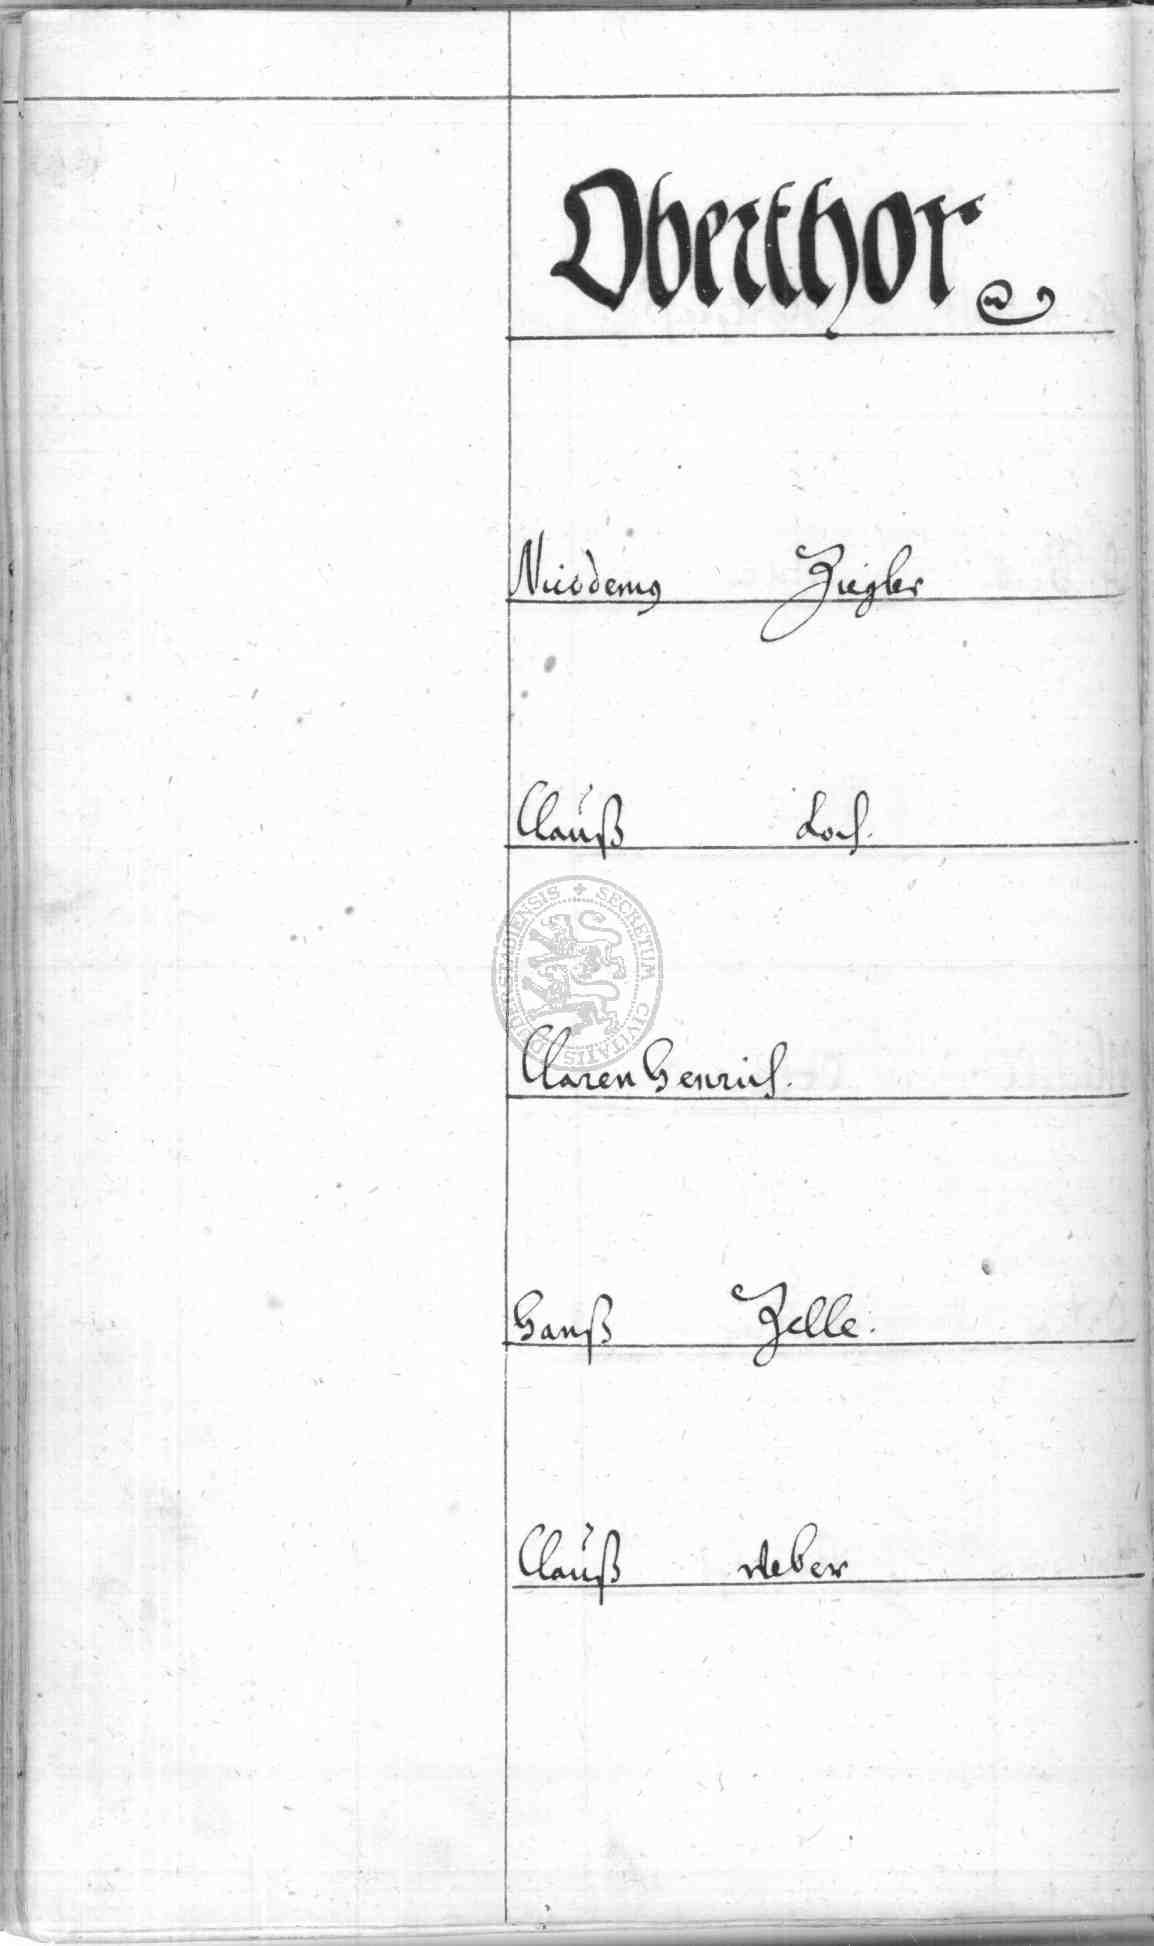 Oberthor
Nicodemus Ziegler
Clauß Loch.
SECRETUM CIVITATIS DUDERSTADIENSIS
Claren Henrich.
Hanß Zelle.
Clauß Weber